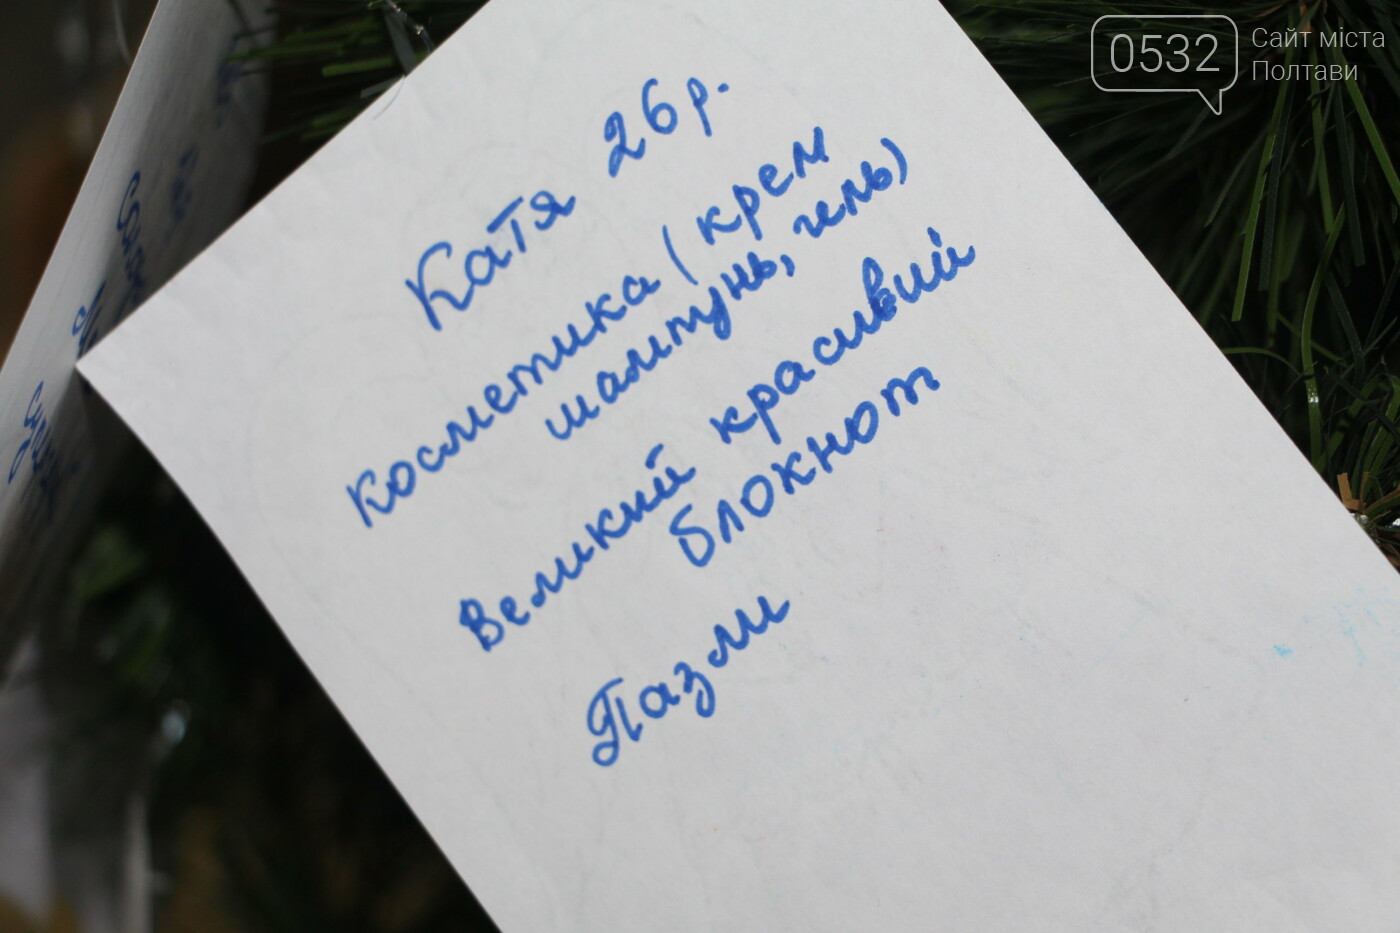 0532
Сайт міста
Полтави
Катя 26 р.
косметика (крем
шампунь, гель)
Великий красивий
блокнот
Пазли